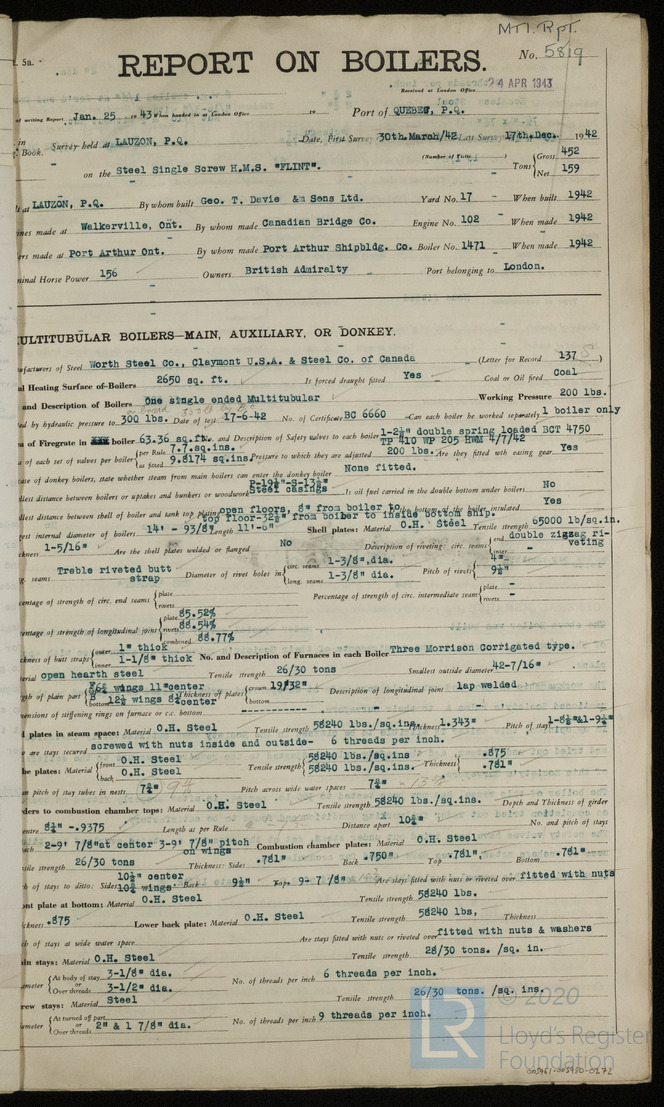 Mtl. Rpt.
5a.
REPORT ON BOILERS.
No. 5819
Received at London Office
24 APR 1943
of writing Report Jan. 25 19 43 When handed in at London Office 19 Port of QUEBEC, P.Q.
in Survey held at LAUZON, P.Q. Date, First Survey 30th.March/42 Last Survey 17th.Dec. 1942
Book.
(Number of Visits )
on the Steel Single Screw H.M.S. "FLINT". Tons { Gross 452
Net 159
at LAUZON, P.Q. By whom built Geo. T. Davie & Sons Ltd. Yard No. 17 When built 1942
ines made at Walkerville, Ont. By whom made Canadian Bridge Co. Engine No. 102 When made 1942
ers made at Port Arthur Ont. By whom made Port Arthur Shipbldg. Co. Boiler No. 1471 When made 1942
minal Horse Power 156 Owners British Admiralty Port belonging to London.
ULTITUBULAR BOILERS—MAIN, AUXILIARY, OR DONKEY.
nufacturers of Steel Worth Steel Co., Claymont U.S.A. & Steel Co. of Canada (Letter for Record 137 )
al Heating Surface of Boilers 2650 sq. ft. Is forced draught fitted Yes Coal or Oil fired Coal
and Description of Boilers One single ended Multitubular Working Pressure 200 lbs.
ed by hydraulic pressure to 300 lbs. Date of test 17-6-42 No. of Certificate BC 6660 Can each boiler be worked separately 1 boiler only
a of Firegrate in boiler 63.36 sq.ft. and Description of Safety valves to each boiler 1-2½" double spring loaded BCT 4750
TP 410 WP 205 HWM 4/7/42
a of each set of valves per boiler { per Rule 7.7.sq.ins.
as fitted 9.8174 sq.ins. Pressure to which they are adjusted 200 lbs. Are they fitted with easing gear Yes
case of donkey boilers, state whether steam from main boilers can enter the donkey boiler None fitted.
llest distance between boilers or uptakes and bunkers or woodwork P-19½"-S-13½" Steel casings Is oil fuel carried in the double bottom under boilers No
llest distance between shell of boiler and tank top plating open floors, 8" from boiler to top floor-32½" from boiler to inside bottom ship. the bottom of the boiler insulated Yes
est internal diameter of boilers 14' - 93/8" Length 11'-6" Shell plates: Material O.H. Steel Tensile strength 65000 lb/sq.in.
ckness 1-5/16" Are the shell plates welded or flanged No Description of riveting: circ. seams { end double zigzag riveting
inter. -
g. seams Treble riveted butt strap Diameter of rivet holes in { circ. seams 1-3/8", dia.
long. seams 1-3/8" dia. Pitch of rivets { 4"
9½"
centage of strength of circ. end seams { plate
rivets Percentage of strength of circ. intermediate seam { plate -
rivets -
centage of strength of longitudinal joint { plate 85.52%
rivets 88.54%
combined 88.77%
ckness of butt straps { outer 1" thick
inner 1-1/8" thick No. and Description of Furnaces in each Boiler Three Morrison Corrigated type.
erial open hearth steel Tensile strength 26/30 tons Smallest outside diameter 42-7/16"
gth of plain part { wings 11"center
bottom Thickness of plates { crown 19/32"
bottom Description of longitudinal joint lap welded
ensions of stiffening rings on furnace or c.c. bottom ----------
d plates in steam space: Material O.H. Steel Tensile strength 58240 lbs./sq.ins. Thickness 1.343" Pitch of stays
are stays secured screwed with nuts inside and outside- 6 threads per inch.
be plates: Material { front O.H. Steel
back O.H. Steel Tensile strength { 58240 lbs./sq.ins
58240 lbs./sq.ins. Thickness { .875
.781"
an pitch of stay tubes in nests 7¾" Pitch across wide water spaces
ders to combustion chamber tops: Material O.H. Steel Tensile strength 58240 lbs./sq.ins. Depth and Thickness of girder
entre 8½" -.9375 Length as per Rule Distance apart 10½" No. and pitch of stays
ach 2-9' 7/8"at center 3-9' 7/8" pitch on wings Combustion chamber plates: Material O.H. Steel
ensile strength 26/30 tons Thickness: Sides .781" Back .750" Top .781", Bottom .781"
h of stays to ditto: Sides 10½" center 10¾ wings Back 9½" Top 9- 7 /8" Are stays fitted with nuts or riveted over fitted with nuts
ont plate at bottom: Material O.H. Steel Tensile strength 58240 lbs.
ckness .875 Lower back plate: Material O.H. Steel Tensile strength 58240 lbs, Thickness
ch of stays at wide water space Are stays fitted with nuts or riveted over fitted with nuts & washers
in stays: Material O.H. Steel Tensile strength 28/30 tons. /sq. in.
ameter { At body of stay 3-1/8" dia.
or
Over threads 3-1/2" dia. No. of threads per inch 6 threads per inch.
rew stays: Material Steel Tensile strength 26/30 tons. /sq. ins.
ameter { At turned off part
or
Over threads 2" & 1 7/8" dia. No. of threads per inch 9 threads per inch.
LR © 2020
Lloyd's Register
Foundation
005961-005980-0272